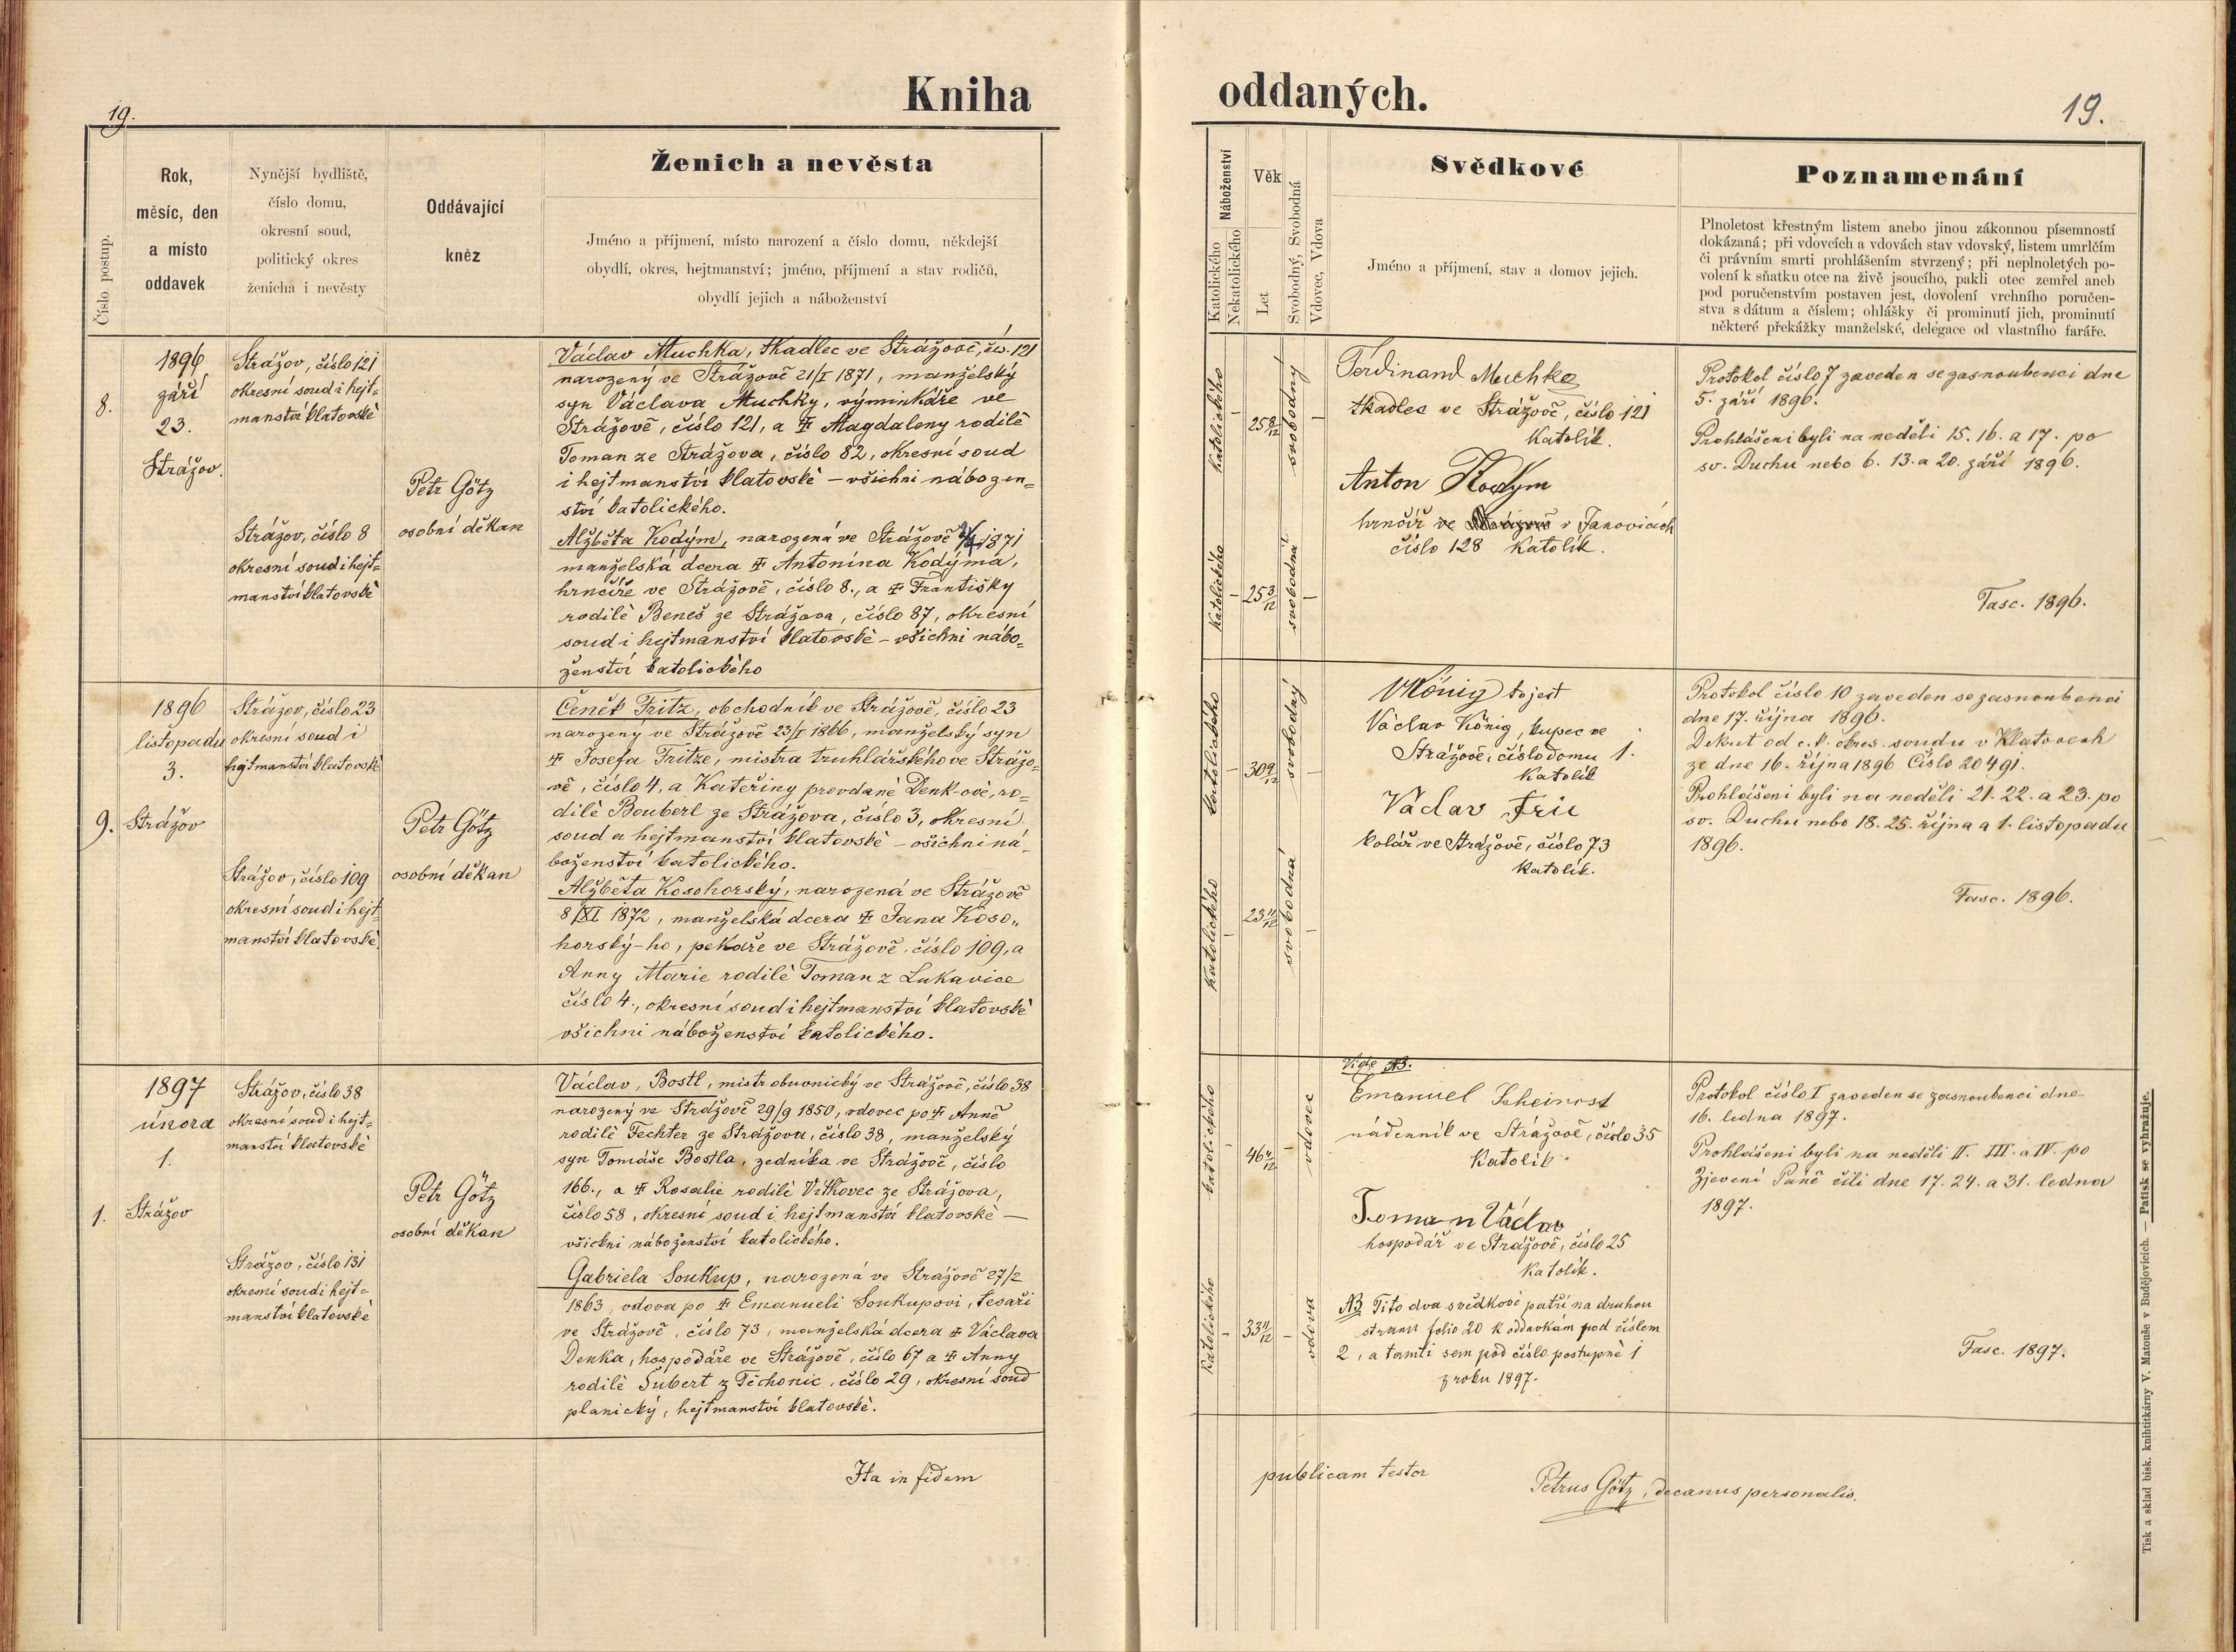 19.
Kniha
Číslo postup.
Rok,
měsíc, den
a místo
oddavek
Nynější bydliště,
číslo domu,
okresní soud,
politický okres
ženicha i nevěsty
Oddávající
kněz
Ženich a nevěsta
Jméno a příjmení, místo narození a číslo domu, někdejší
obydlí, okres, hejtmanství; jméno, příjmení a stav rodičů,
obydlí jejich a náboženství
8.
1896
září
23.
Strážov.
Strážov, číslo 121
okresní soud i hejt=
manství klatovské
Strážov, číslo 8
okresní soud i hejt=
manství klatovské
Petr Götz
osobní děkan
Václav Muchka, tkadlec ve Strážově, čís. 121
narozený ve Strážově 21/I 1871, manželský
syn Václava Muchky, výminkáře ve
Strážově, číslo 121, a ‡ Magdaleny rodilé
Toman ze Strážova, číslo 82, okresní soud
i hejtmanství klatovské – všichni nábožen=
ství katolického.
Alžběta Kodým, narozená ve Strážově 1871
manželská dcera ‡ Antonína Kodýma,
hrnčíře ve Strážově, číslo 8., a ‡ Františky
rodilé Beneš ze Strážova, číslo 87, okresní
soud i hejtmanství klatovské – všichni nábo=
ženství katolického
9.
1896
listopadu
3.
Strážov
Strážov, číslo 23
okresní soud i
hejtmanství klatovské
Strážov, číslo 109
okresní soud i hejt
manství klatovské
Petr Götz
osobní děkan
Čeněk Fritz, obchodník ve Strážově, číslo 23
narozený ve Strážově 23/I 1866, manželský syn
‡ Josefa Fritze, mistra truhlářského ve Strážo=
vě, číslo 4, a Kateřiny provdané Denk-ové, ro=
dilé Bouberl ze Strážova, číslo 3, okresní
soud a hejtmanství klatovské – všichni ná=
boženství katolického.
Alžběta Kosohorský, narozená ve Strážově
8/XI 1872, manželská dcera ‡ Jana Koso„
horský-ho, pekaře ve Strážově, číslo 109, a
Anny Marie rodilé Toman z Lukavice
číslo 4., okresní soud i hejtmanství klatovské
všichni náboženství katolického.
1.
1897
února
1.
Strážov
Strážov, číslo 38
okresní soud i hejt=
manství klatovské
Strážov, číslo 131
okresní soud i hejt=
manství klatovské
Petr Götz
osobní děkan
Václav, Bostl, mistr obuvnický ve Strážově, číslo 38
narozený ve Strážově 29/9 1850, vdovec po ‡ Anně
rodilé Fechter ze Strážova, číslo 38, manželský
syn Tomáše Bostla, zedníka ve Strážově, číslo
166., a ‡ Rosalie rodilé Vítkovec ze Strážova,
číslo 58, okresní soud i hejtmanství klatovské —
všichni náboženství katolického.
Gabriela Soukup, narozená ve Strážově 27/2
1863, vdova po ‡ Emanueli Soukupovi, tesaři
ve Strážově, číslo 73, manželská dcera ‡ Václava
Denka, hospodáře ve Strážově, číslo 67 a ‡ Anny
rodilé Šubert z Těchonic, číslo 29, okresní soud
planický, hejtmanství klatovské.
Ita in fidem
oddaných.
19.
Náboženství
Katolického
Nekatolického
Věk
Let
Svobodný, Svobodná
Vdovec, Vdova
Svědkové
Jméno a příjmení, stav a domov jejich.
Poznamenání
Plnoletost křestným listem anebo jinou zákonnou písemností
dokázaná; při vdovcích a vdovách stav vdovský, listem umrlčím
či právním smrti prohlášením stvrzený; při neplnoletých po-
volení k sňatku otce na živě jsoucího, pakli otec zemřel aneb
pod poručenstvím postaven jest, dovolení vrchního poručen-
stva s dátum a číslem; ohlášky či prominutí jich, prominutí
některé překážky manželské, delegace od vlastního faráře.
katolického
25 8/12
svobodný
katolického
25 3/12
svobodná
Ferdinand Muchka
tkadlec ve Strážově, číslo 121
Katolík.
Anton Kodym
hrnčíř ve Strážově v Janovicích
číslo 128 Katolík.
Protokol číslo 7 zaveden se zasnoubenci dne
5. září 1896.
Prohlášeni byli na neděli 15. 16. a 17. po
sv. Duchu nebo 6. 13. a 20. září 1896.
Fasc. 1896.
katolického
30 9/12
svobodný
katolického
23 11/12
svobodná
VKönig to jest
Václav König, kupec ve
Strážově, číslo domu 1.
Katolík
Václav Fric
kolář ve Strážově, číslo 73
Katolík.
Protokol číslo 10 zaveden se zasnoubenci
dne 17. října 1896.
Dekret od c. k. okres. soudu v Klatovech
ze dne 16. října 1896 Číslo 20491.
Prohlášeni byli na neděli 21. 22. a 23. po
sv. Duchu nebo 18. 25. října a 1. listopadu
1896.
Fasc. 1896.
katolického
46 4/12
vdovec
katolického
33 11/12
vdova
Vide NB.
Emanuel Scheinost
nádenník ve Strážově, číslo 35
Katolík.
Toman Václav
hospodář ve Strážově, číslo 25
Katolík.
NB Tito dva svědkové patří na druhou
stranu folio 20 k oddavkám pod číslem
2, a tamti sem pod číslo postupné 1
z roku 1897.
Protokol číslo I zaveden se zasnoubenci dne
16. ledna 1897.
Prohlášeni byli na neděli II. III. a IV. po
Zjevení Páně čili dne 17. 24. a 31. ledna
1897.
Fasc. 1897.
publicam testor
Petrus Götz, decanus personalis.
Tisk a sklad bisk. knihtiskárny V. Matouše v Budějovicích. — Patisk se vyhražuje.